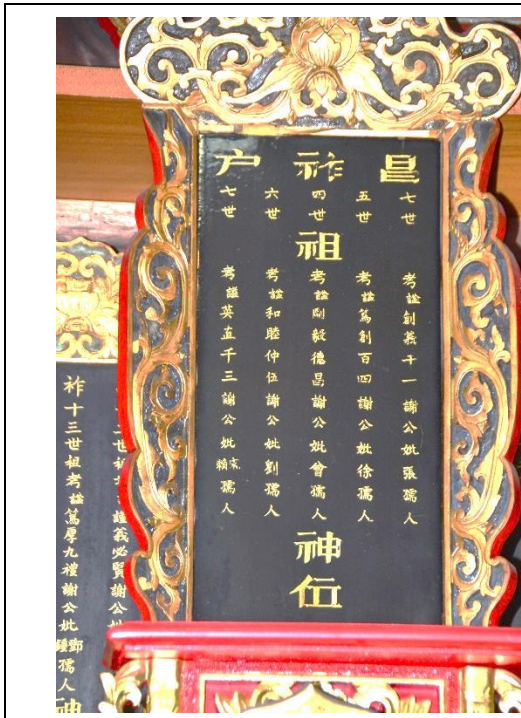 昌祚户
七世 考諡創義千一謝公妣張孺人
五世 考諡篤創百四謝公妣徐孺人
四世祖考諡剛毅德昌謝公妣曾孺人神位
六世 考諡和睦仲伍謝公妣劉孺人
七世 考諡英直千三謝公妣賴孺人
二世祖諡義必賢謝公妣
祚十三世祖考諡篤厚九禮謝公妣鄧鍾孺人神